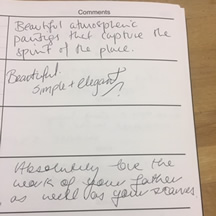 Comments
Beautiful atmospheric
paintings that capture the
spirit of the place.
Beautiful.
Simple + elegant
Absolutely love the
work of your father
as well as your scarves